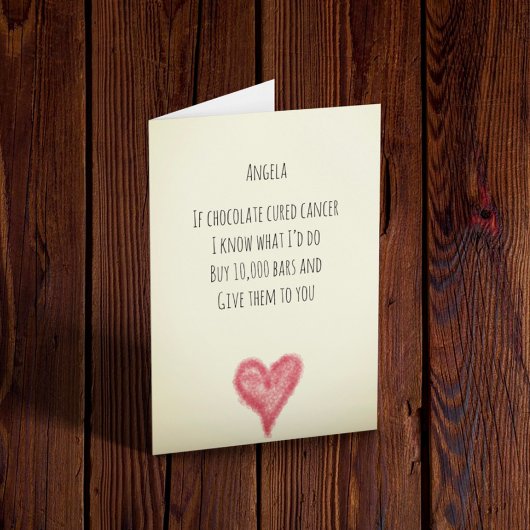 Angela
If chocolate cured cancer
I know what I'd do
Buy 10,000 bars and
Give them to you